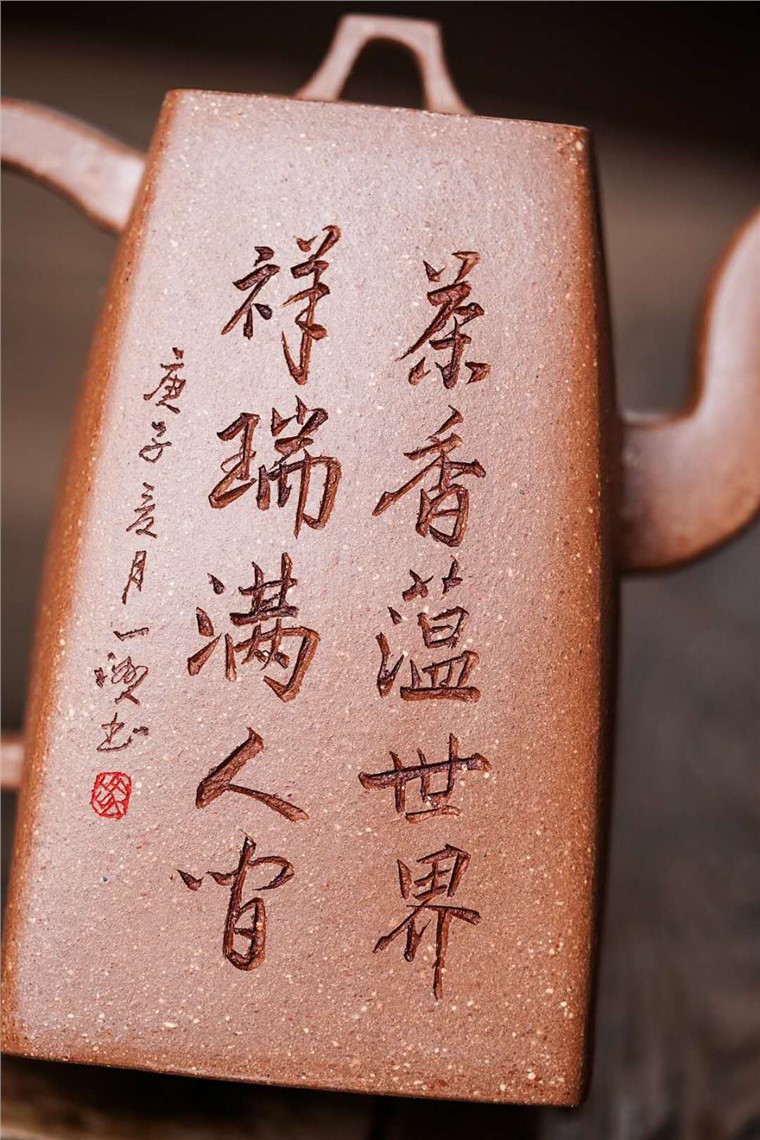 茶香蕰世界
祥瑞满人间
庚子夏月一
书